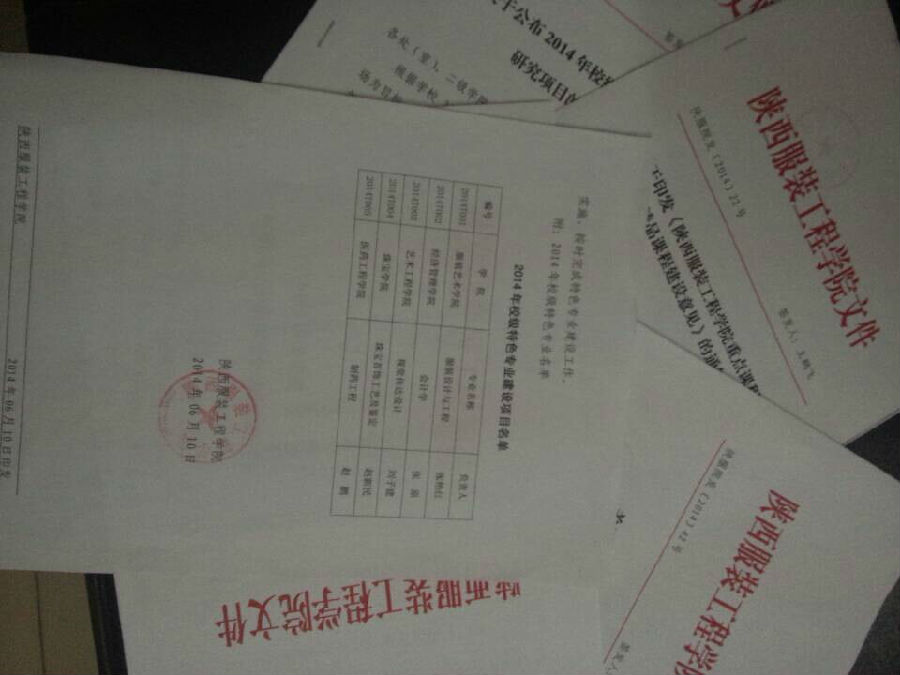 实施，按时完成特色专业建设工作。
附：2014年校级特色专业名单
2014年校级特色专业建设项目名单
编号 学院 专业名称 负责人
2014T001 服装艺术学院 服装设计与工程
2014T002 经济管理学院 会计学
2014T003 艺术工程学院 视觉传达设计
2014T004 珠宝学院 珠宝首饰工艺及鉴定
2014T005 医药工程学院 制药工程 赵鹏
陕西服装工程学院
2014年06月10日
陕西服装工程学院
2014年06月10日印发
公布2014年校
研究项目
各处（室）、二级学院
根据学校
陕西服装工程学院文件
陕服院发（2014）22号
签发人：
印发《陕西服装工程学院重点课程
品课程建设意见》的通
陕西服装工程学
陕服院发（2014）42号
陕西服装工程学院文件